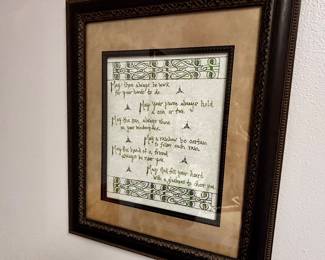 May there always be work
for your hands to do.
May your purse always hold
a coin or two.
May the sun always shine
on your windowpane.
May a rainbow be certain
to follow each rain.
May the hand of a friend
always be near you.
May God fill your heart
with gladness to cheer you.